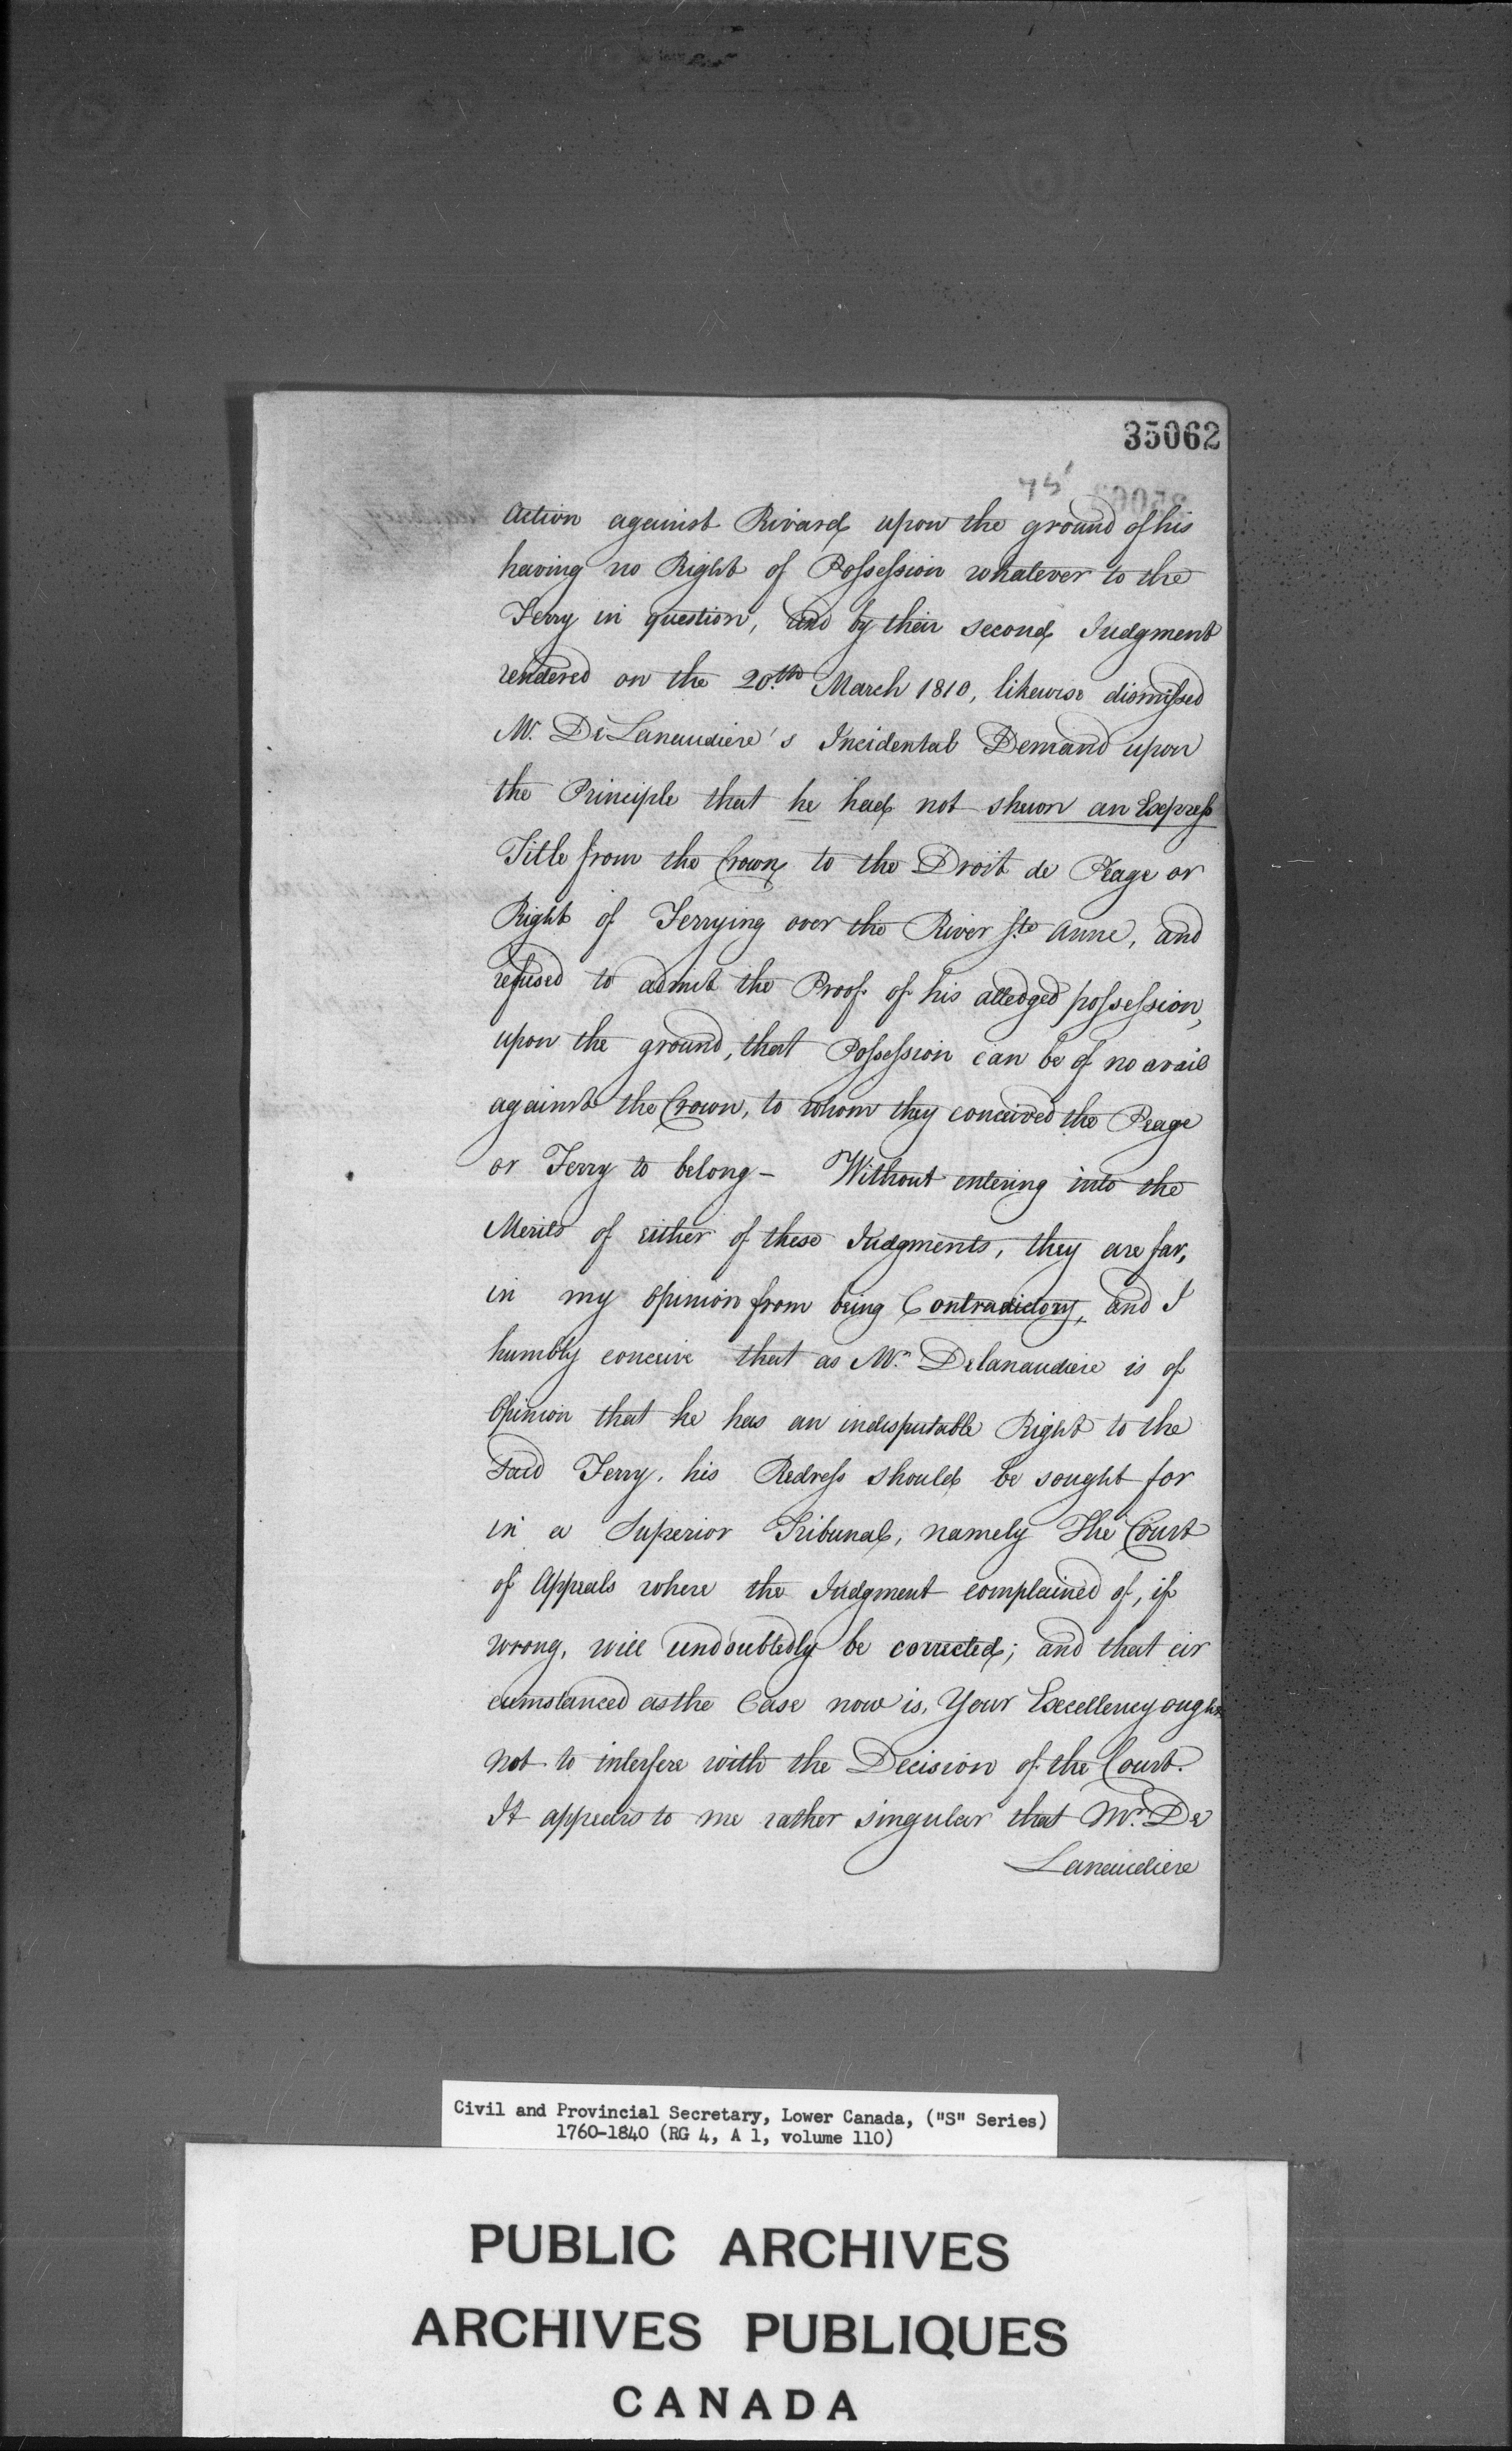 35062
75
Action against Rivard upon the ground of his
having no Right of Possession whatever to the
Ferry in question, and by their second Judgment
rendered on the 20th March 1810, likewise dismissed
Mr. De Lanaudiere's Incidental Demand upon
the Principle that he had not shewn an Express
Title from the Crown to the Droit de Peage or
Right of Ferrying over the River Ste Anne, and
refused to admit the Proof of his alledged possession,
upon the ground, that Possession can be of no avail
against the Crown, to whom they conceived the Peage
or Ferry to belong - Without entering into the
Merits of either of these Judgments, they are far,
in my Opinion from being Contradictory, and I
humbly conceive that as Mr. Delanaudiere is of
Opinion that he has an indisputable Right to the
Said Ferry, his Redress should be sought for
in a Superior Tribunal, namely The Court
of Appeals where the Judgment complained of, if
wrong, will undoubtedly be corrected; and that cir
cumstanced as the Case now is, Your Excellency ought
not to interfere with the Decision of the Court.
It appears to me rather singular that Mr. De
Lanaudiere
Civil and Provincial Secretary, Lower Canada, ("S" Series)
1760-1840 (RG 4, A 1, volume 110)
PUBLIC ARCHIVES
ARCHIVES PUBLIQUES
CANADA